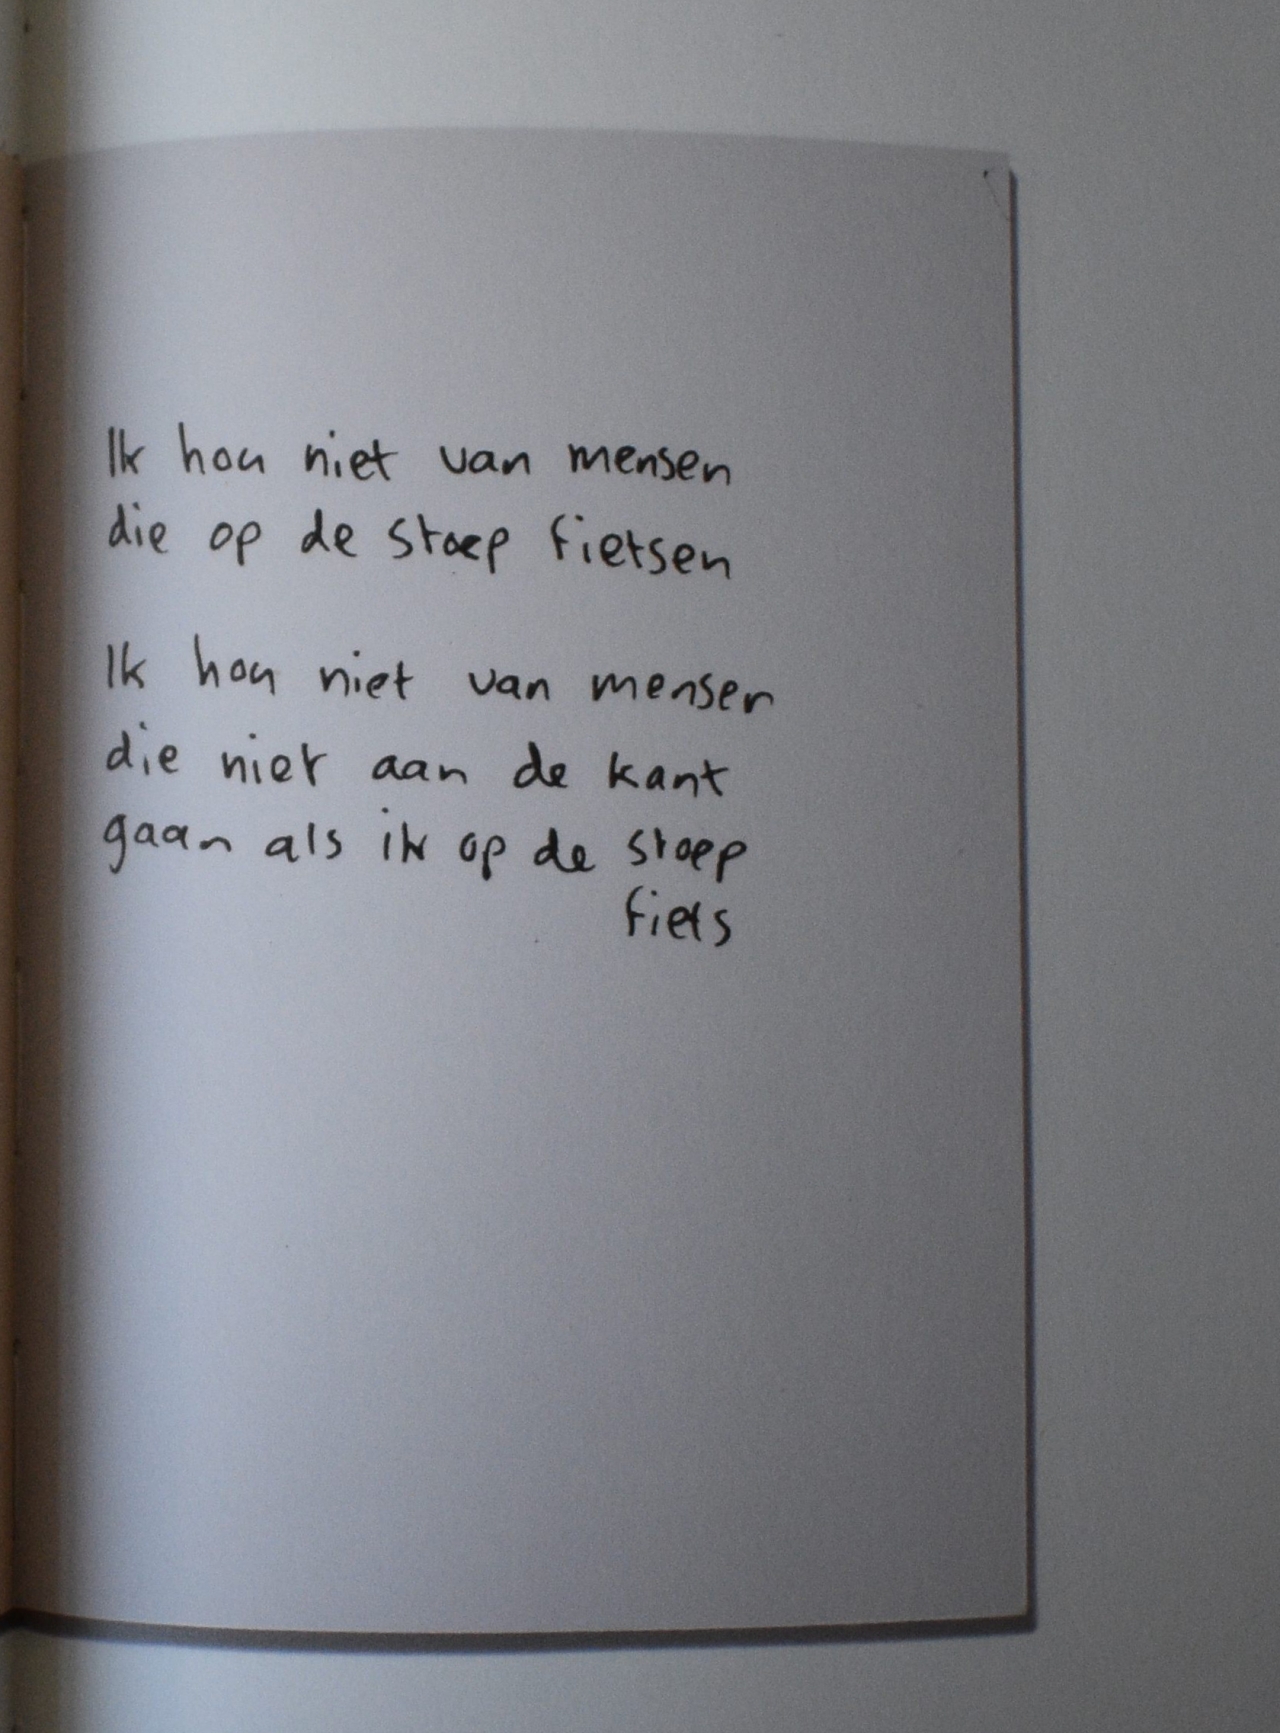 Ik hou niet van mensen
die op de stoep fietsen
Ik hou niet van mensen
die niet aan de kant
gaan als ik op de stoep
fiets